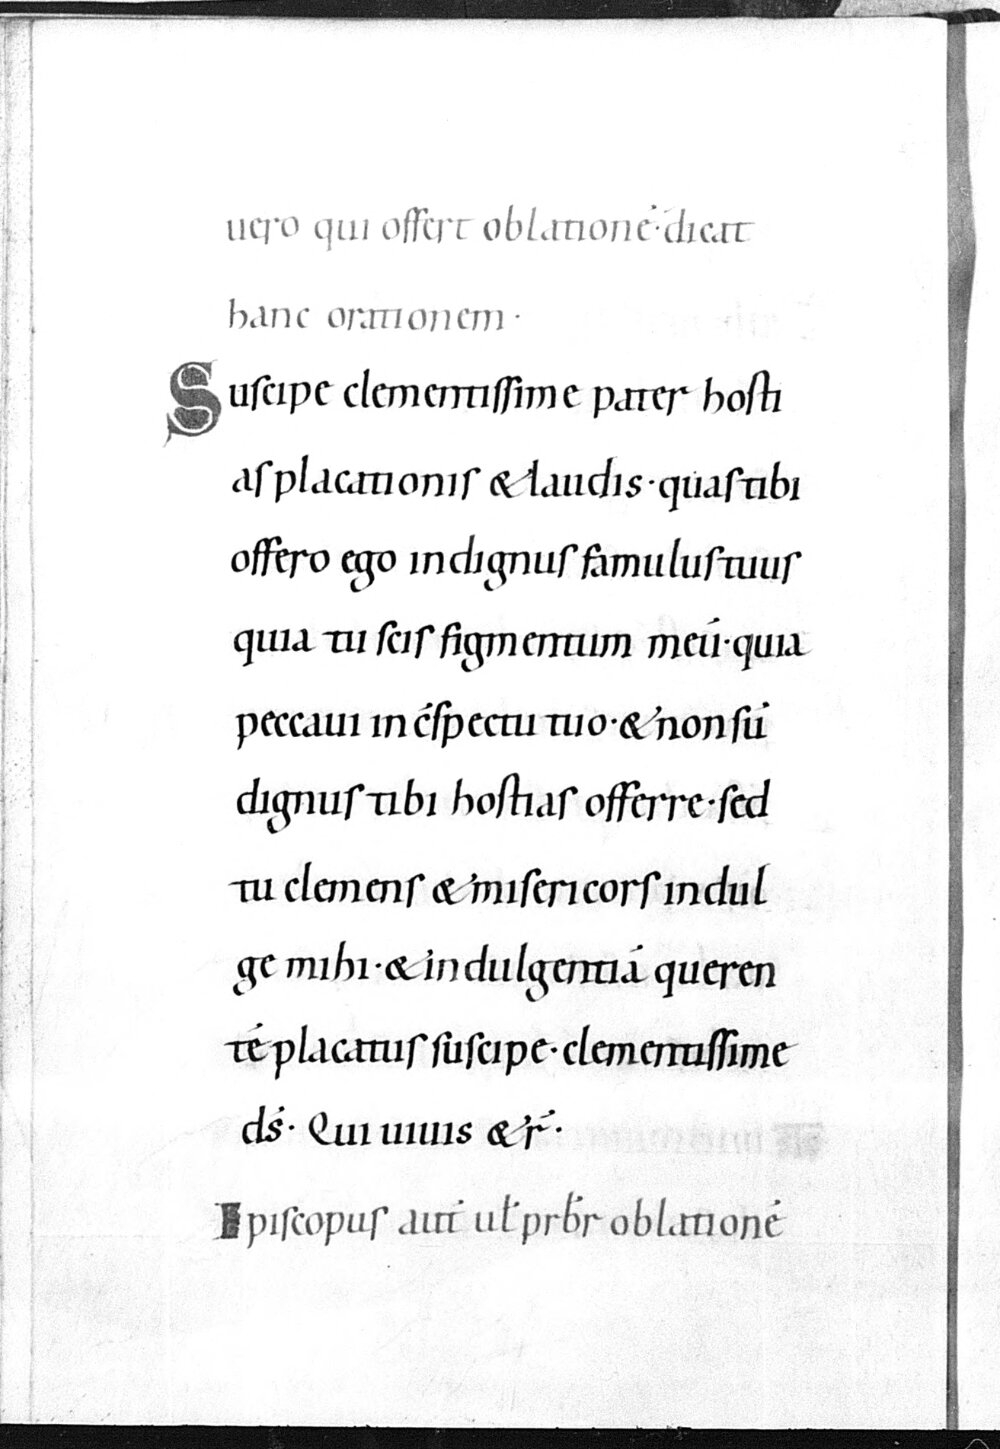 uero qui offert oblationē· dicat
hanc orationem·
Suscipe clementissime pater hosti
as placationis & laudis· quas tibi
offero ego indignus famulus tuus
quia tu scis figmentum meū· quia
peccaui in c̄spectu tuo· & non sū
dignus tibi hostias offerre· sed
tu clemens & misericors indul
ge mihi· & indulgentiā queren
tē placatus suscipe· clementissime
ds̄· Qui uiuis & r̄·
Episcopus aut̄ ul̄ prb̄r oblationē